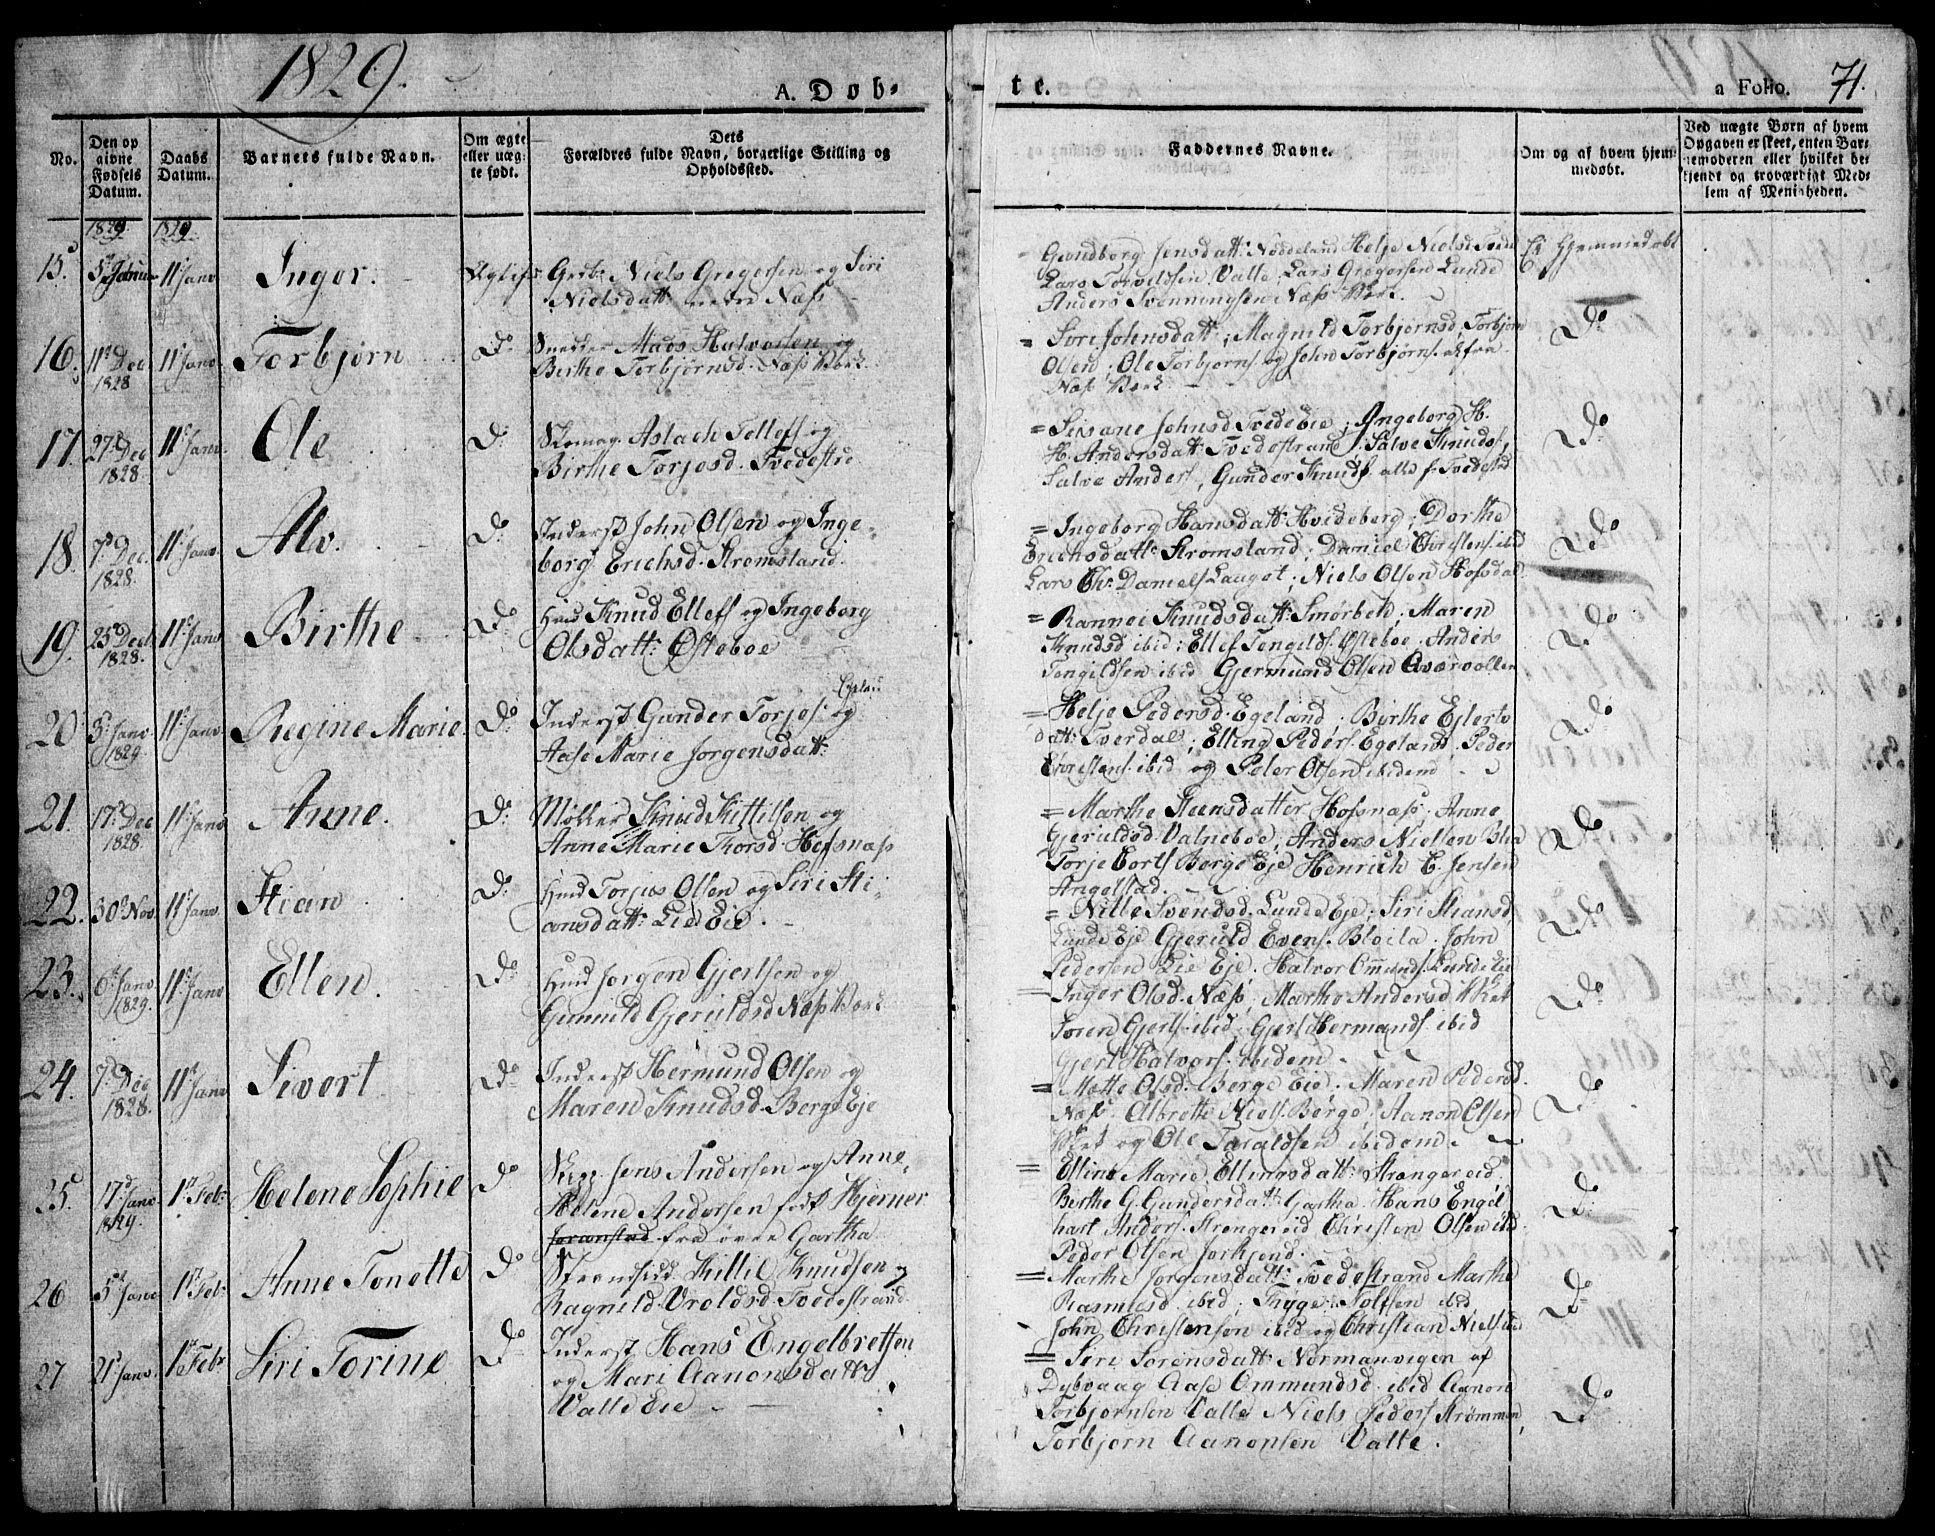 1829.
A. Døb-
te.
a Folio. 71.
No.
Den opgivne Fødsels Datum.
Daabs Datum.
Barnets fulde Navn.
Om ægte eller uægte født.
Dets
Forældres fulde Navn, borgerlige Stilling og
Opholdssted.
Faddernes Navne.
Om og af hvem hjemmedøbt.
Ved uægte Børn af hvem
Opgaven er skeet, enten Bar-
nemoderen eller hvilket be-
kjendt og troværdigt Med-
lem af Menigheden.
1829 1829
15. 11 Janv Inger. Niels Gregersen og Siri
Nielsdatt: Næs
Gundborg Jensdatt: Helje Niels
Lars Torvildsen Valle; Lars Gregersen Lunde
Anders Svenningsen Næs Værk
Ej Hjemmedøbt
16. 11 Dec 1828 11 Janv. Torbjørn Do Mads Halvorsen og
Birthe Torbjørnsd. Næs Værk
= Siri Johnsdatt; Magnild Torbjørnsd, Torbjørn
Olsen; Ole Torbjørns. og John Torbjørns. fra
Næs Værk
Do
17. 27 Dec 1828 11 Janv. Ole Do Aslach Tellefs og
Birthe Torjosd. Tvedestr
= Johnsd Tvede Eie; Ingeborg H.
H. Andersdatt Tvedestrand; Salve Knuds,
Salve Anders, Gunder Knuds. alle f: Tvedestd
Do
18. 7 Dec. 1828. 11 Janv. Alv. Do Inderst John Olsen og Inge-
borg Erichsd. Strømsland.
= Ingeborg Hansdatt Hvideberg; Dorthe
Erichsdatt Strømsland; Daniel Christens. ibid
Lars Chr: Daniels Lauget; Niels Olsen Hofsdal
Do
19. 25 Dec 1828. 11 Janv Birthe Do Knud Ellefs og Ingeborg
Olsdatt: Østeboe
= Knudsdatt: Maren
Knudsd ibid; Ellef Tengilds. Østeboe, Anders
Tengildsen ibid Gjermund Olsen
Do
20. 3 Janv 1829. 11 Janv. Regine Marie. Do Inderst Gunder Torjos. og
Aase Marie Jorgensdatt:
= Helje Pedersd. Egeland; Birthe Ejlerts
datt: Tverdal; Elling Peders. Egeland. Peder
Christens. ibid og Peter Olsen ibidem
Do
21. 17 Dec 1828. 11 Janv Anne. Do Møller Knud Kittelsen og
Anne Marie Thorsd. Hofsnæs
= Marthe Steensdatter Hofsnæs; Anne
Gjeruldsd. Valneboe; Anders Nielsen
Torje Berge Eje Henrich E. Jensen
Angelstad.
Do
22. 30 Nov. 11 Janv. Stian Do Torjus Olsen og Siri Sti-
ansdatt: Lie Eie.
= Nille Svendsd. Lunde Eje; Siri Stiansd,
Lunde Eje Gjeruld Evens. John
Pedersen Lie Eje. Halvor Ommunds. Lunde Eie
Do
23. 6 Janv 1829. 11 Janv Ellen. Do Jorgen Gjertsen og
Gunnild Gjeruldsd Næs Værk
= Inger Olsd. Næs; Marthe Andersd
Soren Gjerts. ibid; Gjert Hermands. ibid
Gjert Halvors. ibidem
Do
24. 7 Dec 1828. 11 Janv Sivert Do Inderst Hermund Olsen og
Maren Knudsd. Berge Eje
= Mette Olsd. Berge Eie. Maren Pedersd.
Næs. Albrette Niels. Berge; Aanon Elsen
og Ole Taraldsen ibidem.
Do
25. 17 Janv 1829. 1 Feb. Helene Sophie Do Jens Andersen og Anne
Helene Andersen født Hjerner
fra øvre Gartha
= Elline Marie Ellingsdatt: Strengereid,
Berthe G. Gundersdatt: Gartha. Hans Engel
hart Anders. Strengereid Christen Olsen ibd.
Peder Olsen
Do
26 5 Janv 1 Feb. Anne Tonette Do Kittil Knudsen og
Ragnild Uroldsd. Tvedestrand.
= Marthe Jorgensdatt: Tvedestrand Marthe
Rasmusd. ibid; Tryge Tolfsen ibid
John Christensen ibid og Christian Niels ibid
Do
27 21 Janv. 1 Febr Siri Torine Do Inderst Hans Engelbretsen
og Mari Aanonsdatt
Valle Eie
= Siri Sorensdatt: Normanvigen af
Dybvaag Aase Ommundsd. ibid Aanon
Torbjornsen Valle Niels Peders Strømmen,
Torbjorn Aanonsen Valle.
Do